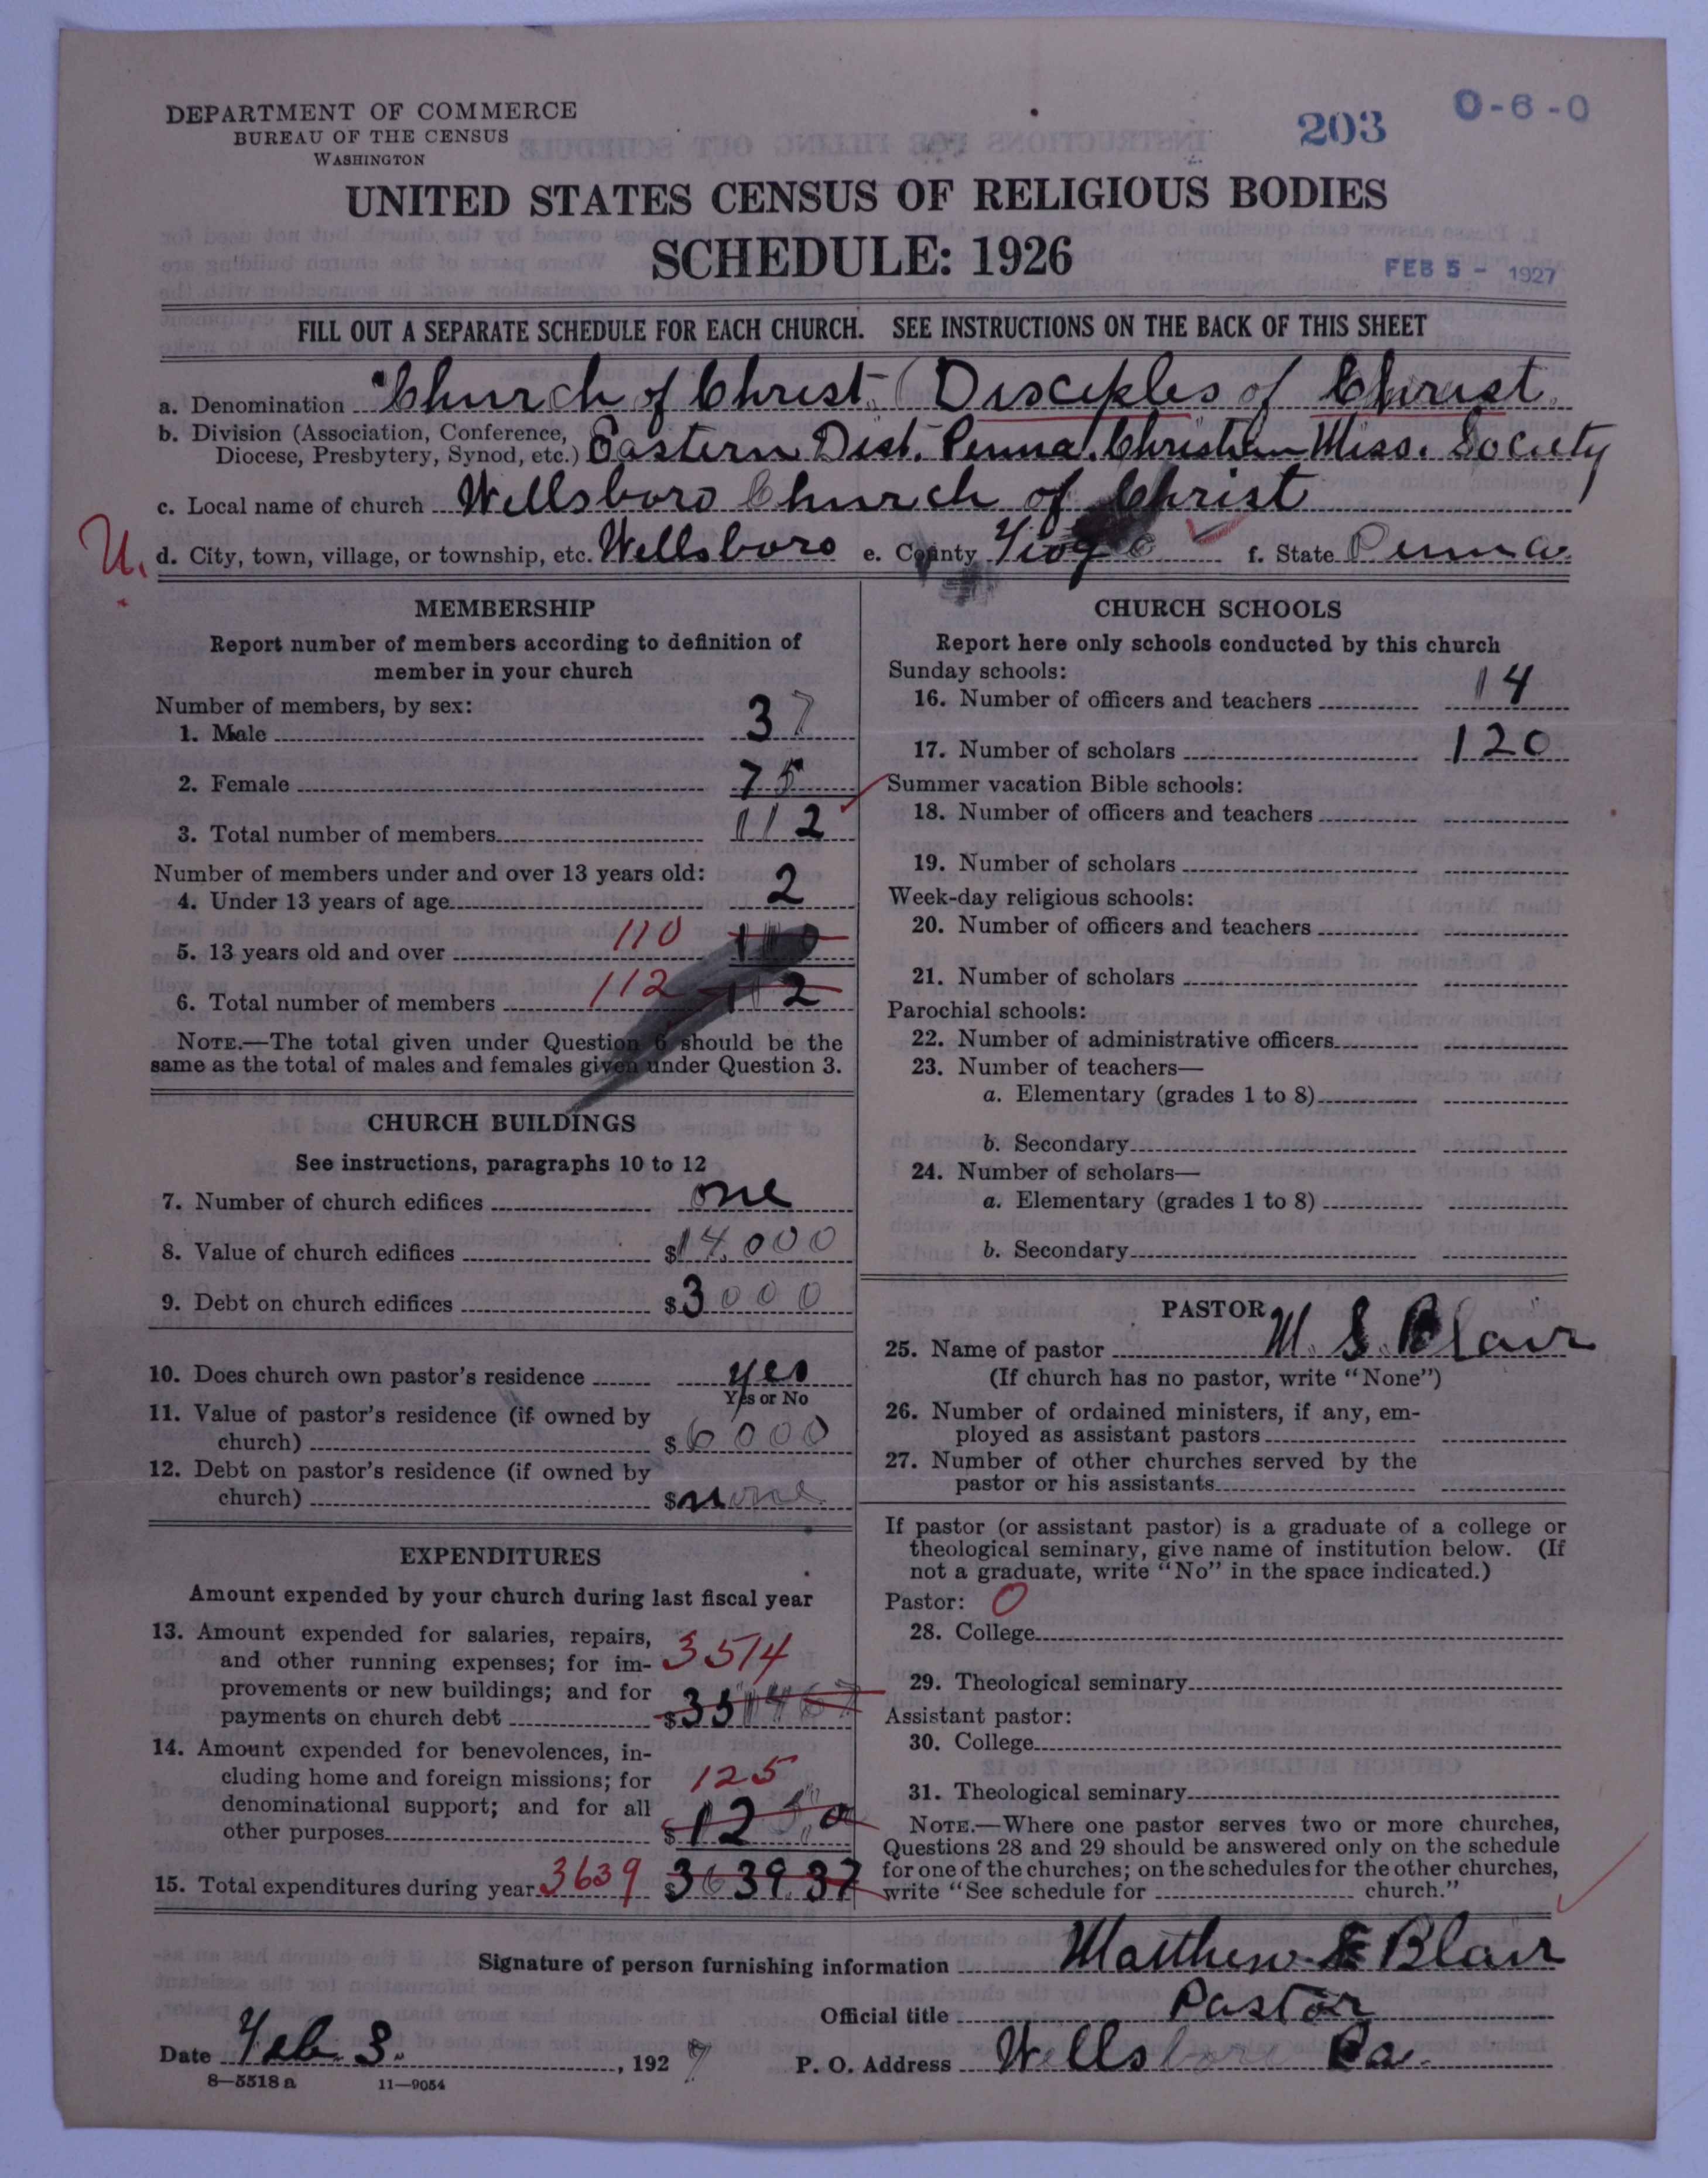 DEPARTMENT OF COMMERCE
BUREAU OF THE CENSUS
WASHINGTON
203
0-6-0
UNITED STATES CENSUS OF RELIGIOUS BODIES
SCHEDULE: 1926
FEB 5 - 1927
FILL OUT A SEPARATE SCHEDULE FOR EACH CHURCH. SEE INSTRUCTIONS ON THE BACK OF THIS SHEET
a. Denomination Church of Christ (Disciples of Christ
b. Division (Association, Conference, Diocese, Presbytery, Synod, etc.) Eastern Dist. Penna. Christian Miss. Society
c. Local name of church Wellsboro Church of Christ
U.
d. City, town, village, or township, etc. Wellsboro e. County Tioga f. State Penna.
MEMBERSHIP
Report number of members according to definition of
member in your church
Number of members, by sex:
1. Male 37
2. Female 75
3. Total number of members 112
Number of members under and over 13 years old:
4. Under 13 years of age 2
5. 13 years old and over 110 110
6. Total number of members 112 112
NOTE.—The total given under Question 6 should be the
same as the total of males and females given under Question 3.
CHURCH BUILDINGS
See instructions, paragraphs 10 to 12
7. Number of church edifices one
8. Value of church edifices $14.000
9. Debt on church edifices $3000
10. Does church own pastor's residence yes
Yes or No
11. Value of pastor's residence (if owned by
church) $6000
12. Debt on pastor's residence (if owned by
church) $none
EXPENDITURES
Amount expended by your church during last fiscal year
13. Amount expended for salaries, repairs,
and other running expenses; for im- 3514
provements or new buildings; and for
payments on church debt $3514
14. Amount expended for benevolences, in-
cluding home and foreign missions; for 125
denominational support; and for all
other purposes $125
15. Total expenditures during year 3639 $3639.37
CHURCH SCHOOLS
Report here only schools conducted by this church
Sunday schools:
16. Number of officers and teachers 14
17. Number of scholars 120
Summer vacation Bible schools:
18. Number of officers and teachers
19. Number of scholars
Week-day religious schools:
20. Number of officers and teachers
21. Number of scholars
Parochial schools:
22. Number of administrative officers
23. Number of teachers—
a. Elementary (grades 1 to 8)
b. Secondary
24. Number of scholars—
a. Elementary (grades 1 to 8)
b. Secondary
PASTOR
25. Name of pastor M. S. Blair
(If church has no pastor, write "None")
26. Number of ordained ministers, if any, em-
ployed as assistant pastors
27. Number of other churches served by the
pastor or his assistants
If pastor (or assistant pastor) is a graduate of a college or
theological seminary, give name of institution below. (If
not a graduate, write "No" in the space indicated.)
Pastor: O
28. College
29. Theological seminary
Assistant pastor:
30. College
31. Theological seminary
NOTE.—Where one pastor serves two or more churches,
Questions 28 and 29 should be answered only on the schedule
for one of the churches; on the schedules for the other churches,
write "See schedule for church."
Signature of person furnishing information Matthew S Blair
Official title Pastor
Date Feb. 3. , 1927 P. O. Address Wellsboro Pa.
8—5518 a 11—9054